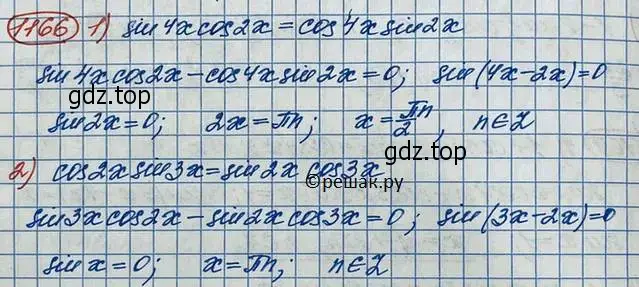 1166 1) sin4xcos2x=cos4xsin2x
sin4xcos2x-cos4xsin2x=0; sin(4x-2x)=0
gdz.top
sin2x=0; 2x=πn; x=πn/2, n∈Z
gdz.top
2) cos2xsin3x=sin2x cos3x
©решак.ру
sin3xcos2x-sin2xcos3x=0; sin(3x-2x)=0
sinx=0; x=πn; n∈Z